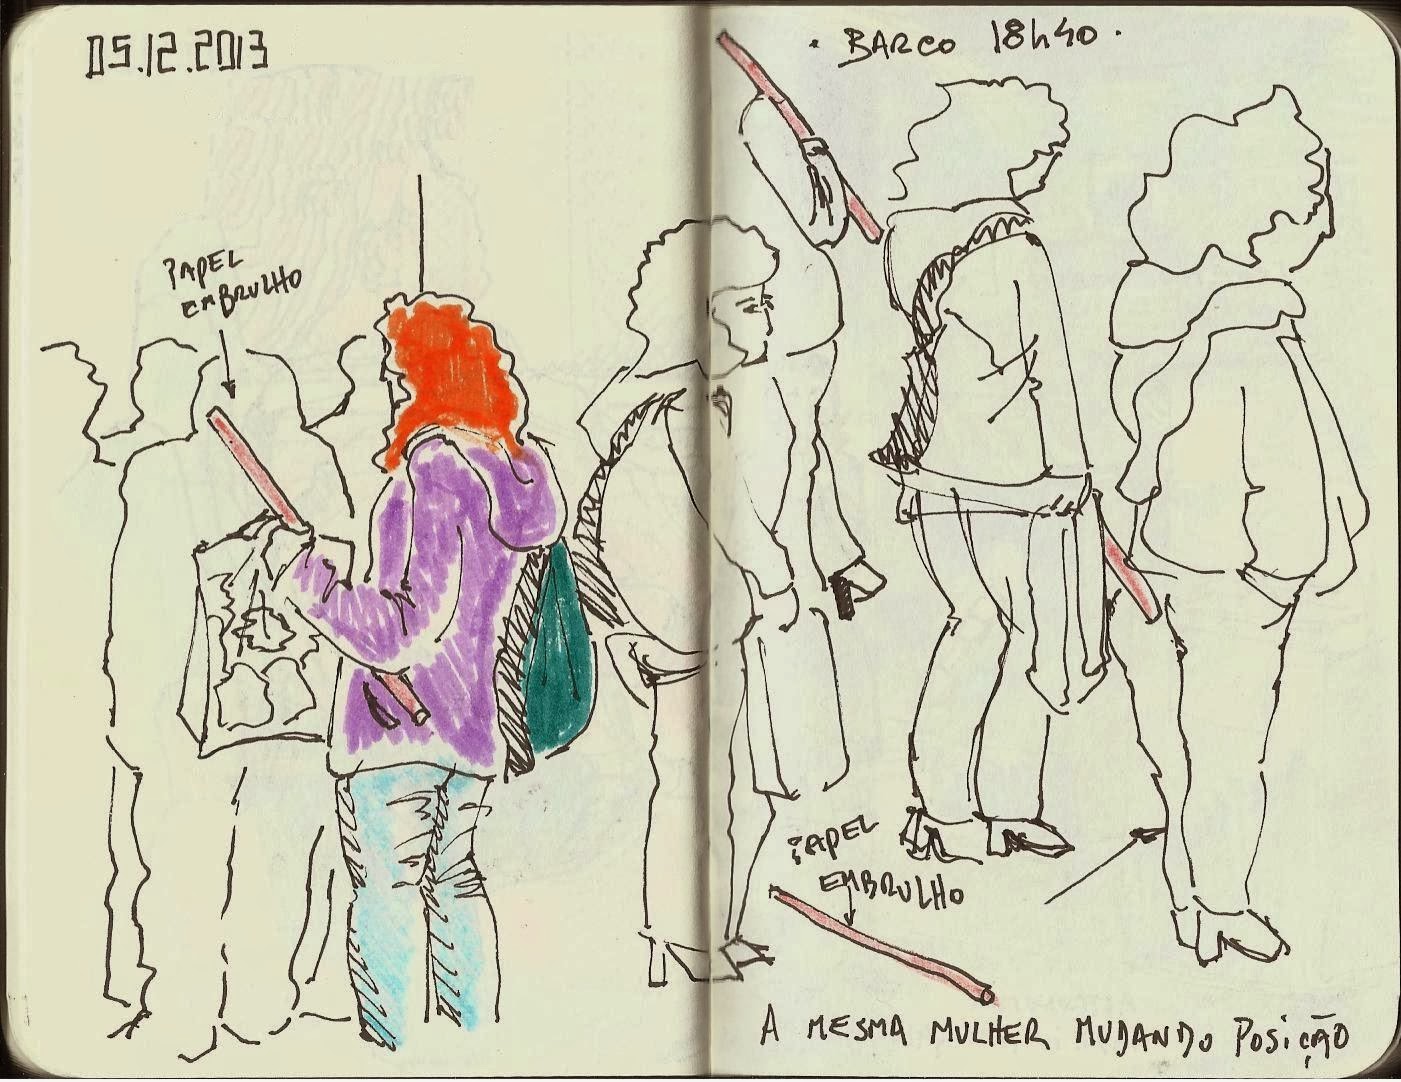 05.12.2013
PAPEL
EMBRULHO
· BARCO 18h40 ·
PAPEL
EMBRULHO
A MESMA MULHER MUDANDO POSIÇÃO